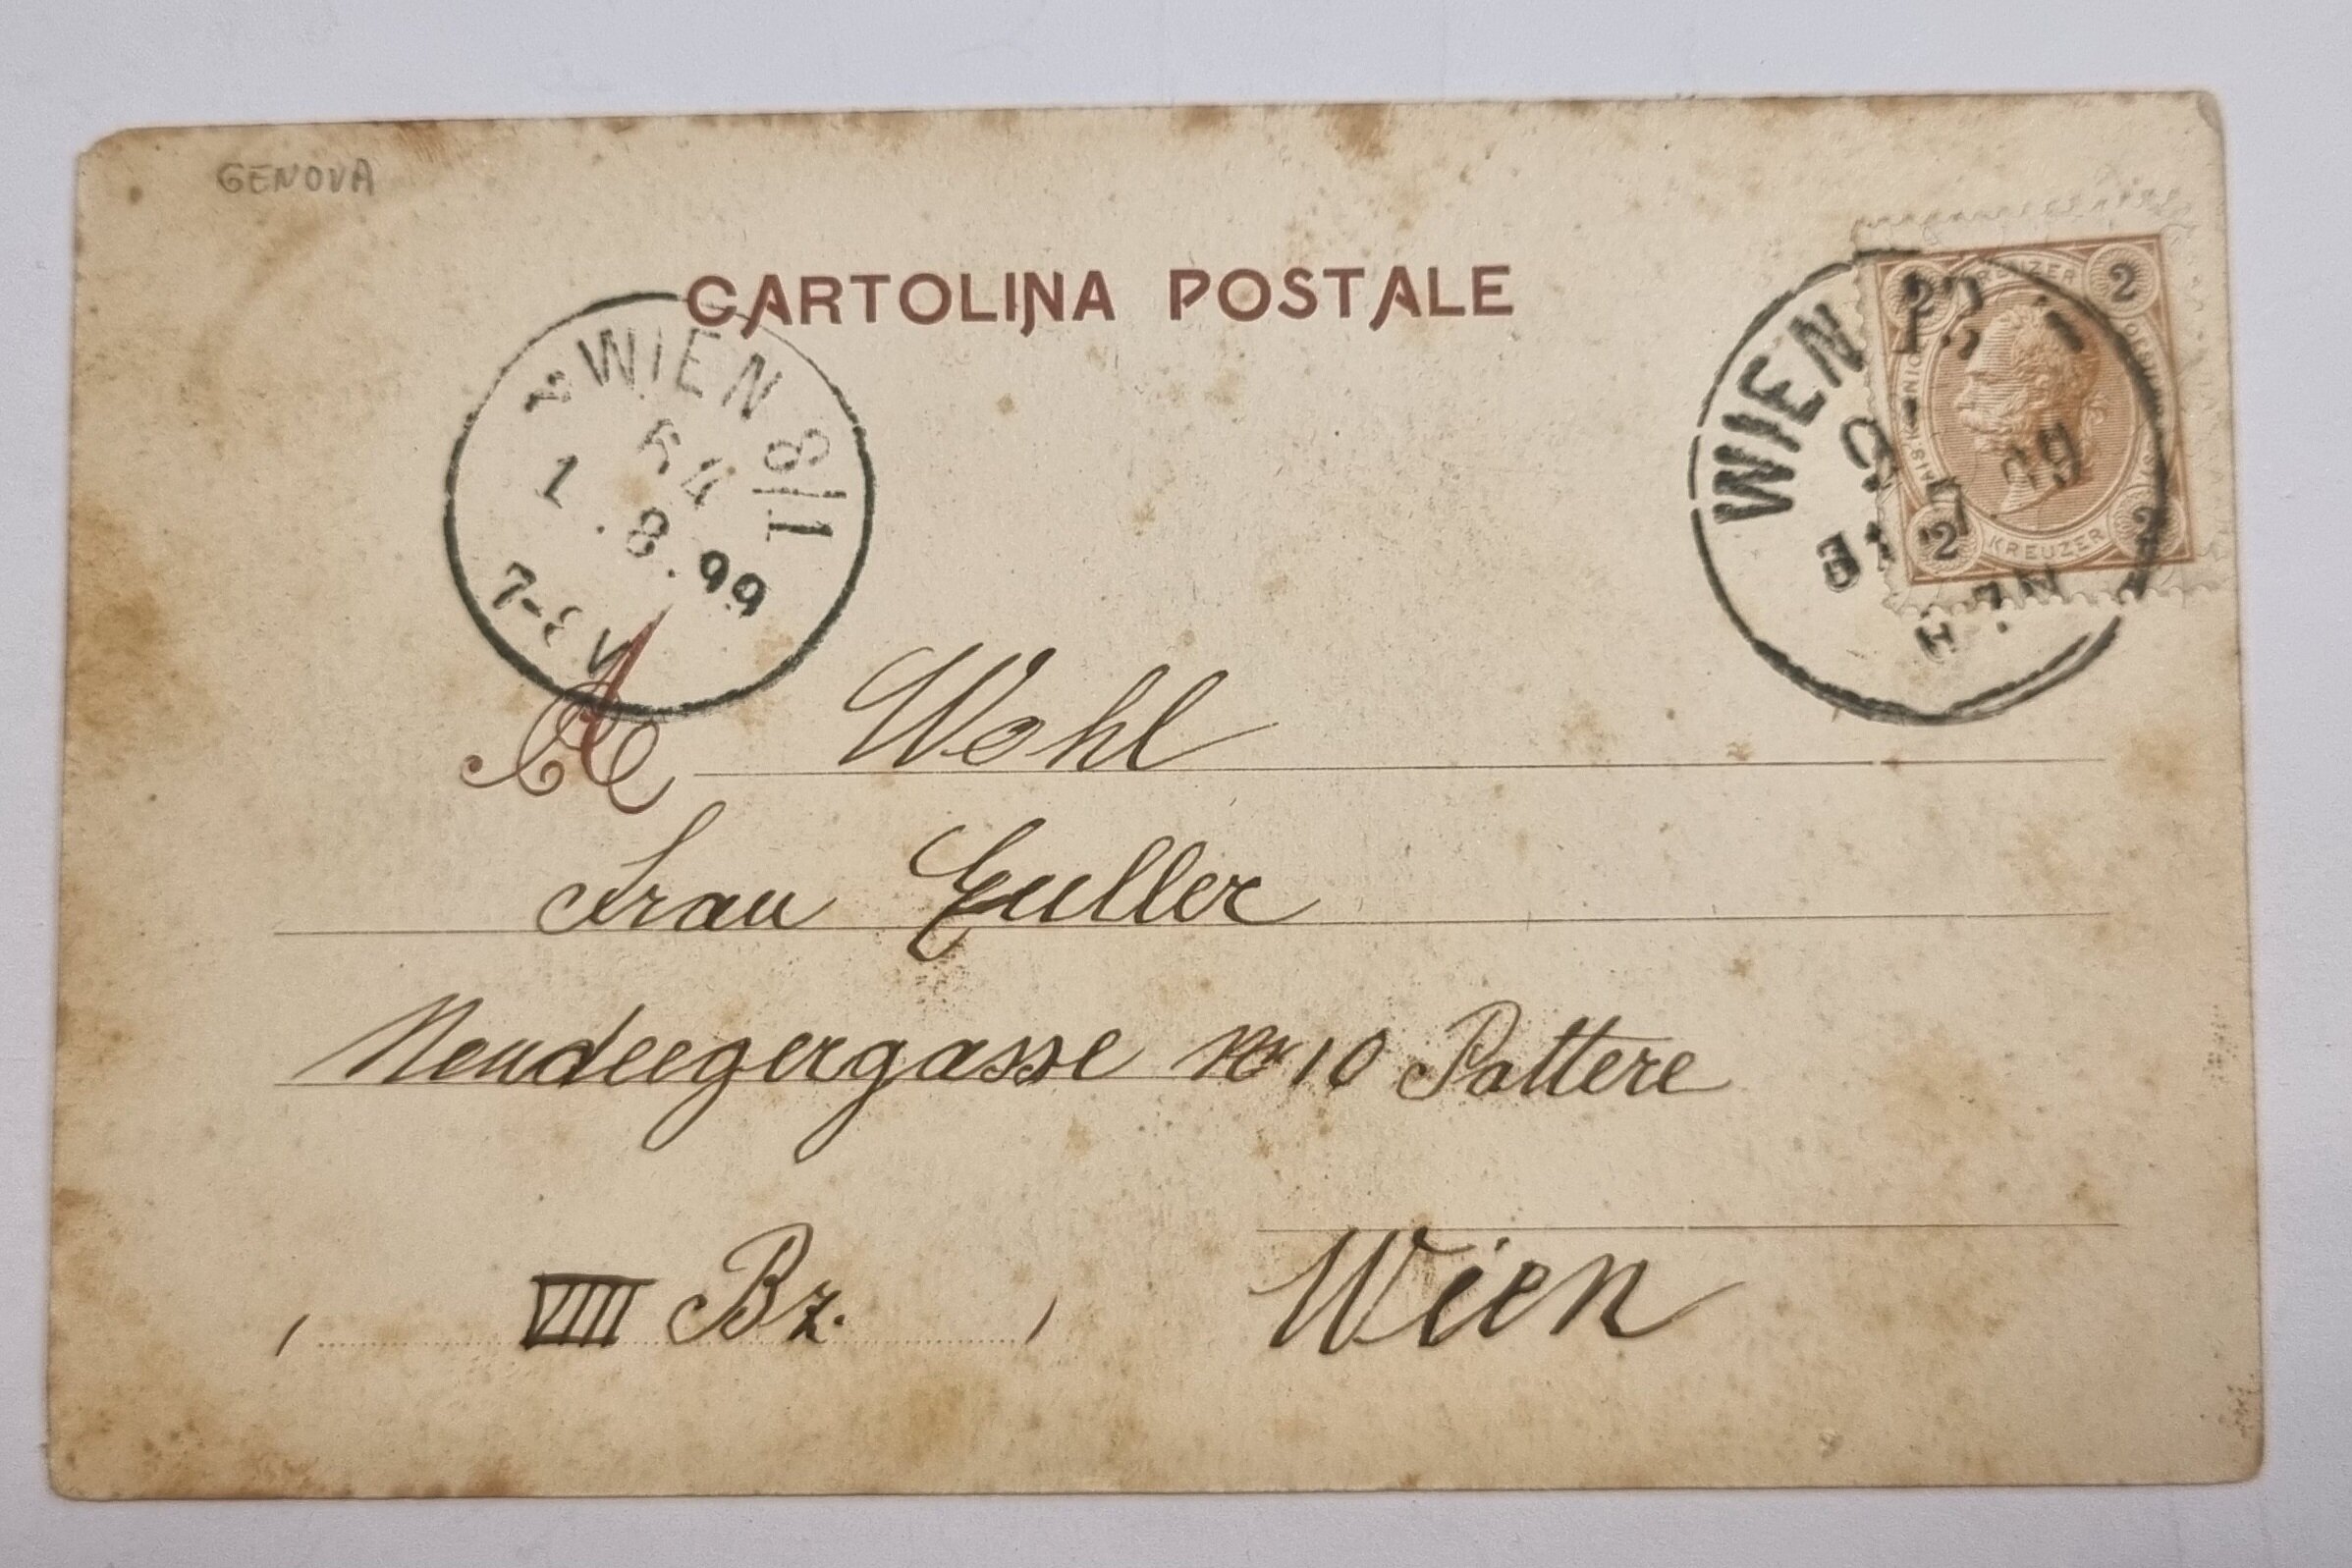 GENOVA
CARTOLINA POSTALE
WIEN 8/1
1.8.99
WIEN
2 KREUZER 2
2 KREUZER 2
A Wohl
Frau Guller
Neudeegergasse No 10 Pattere
VIII Bz. Wien